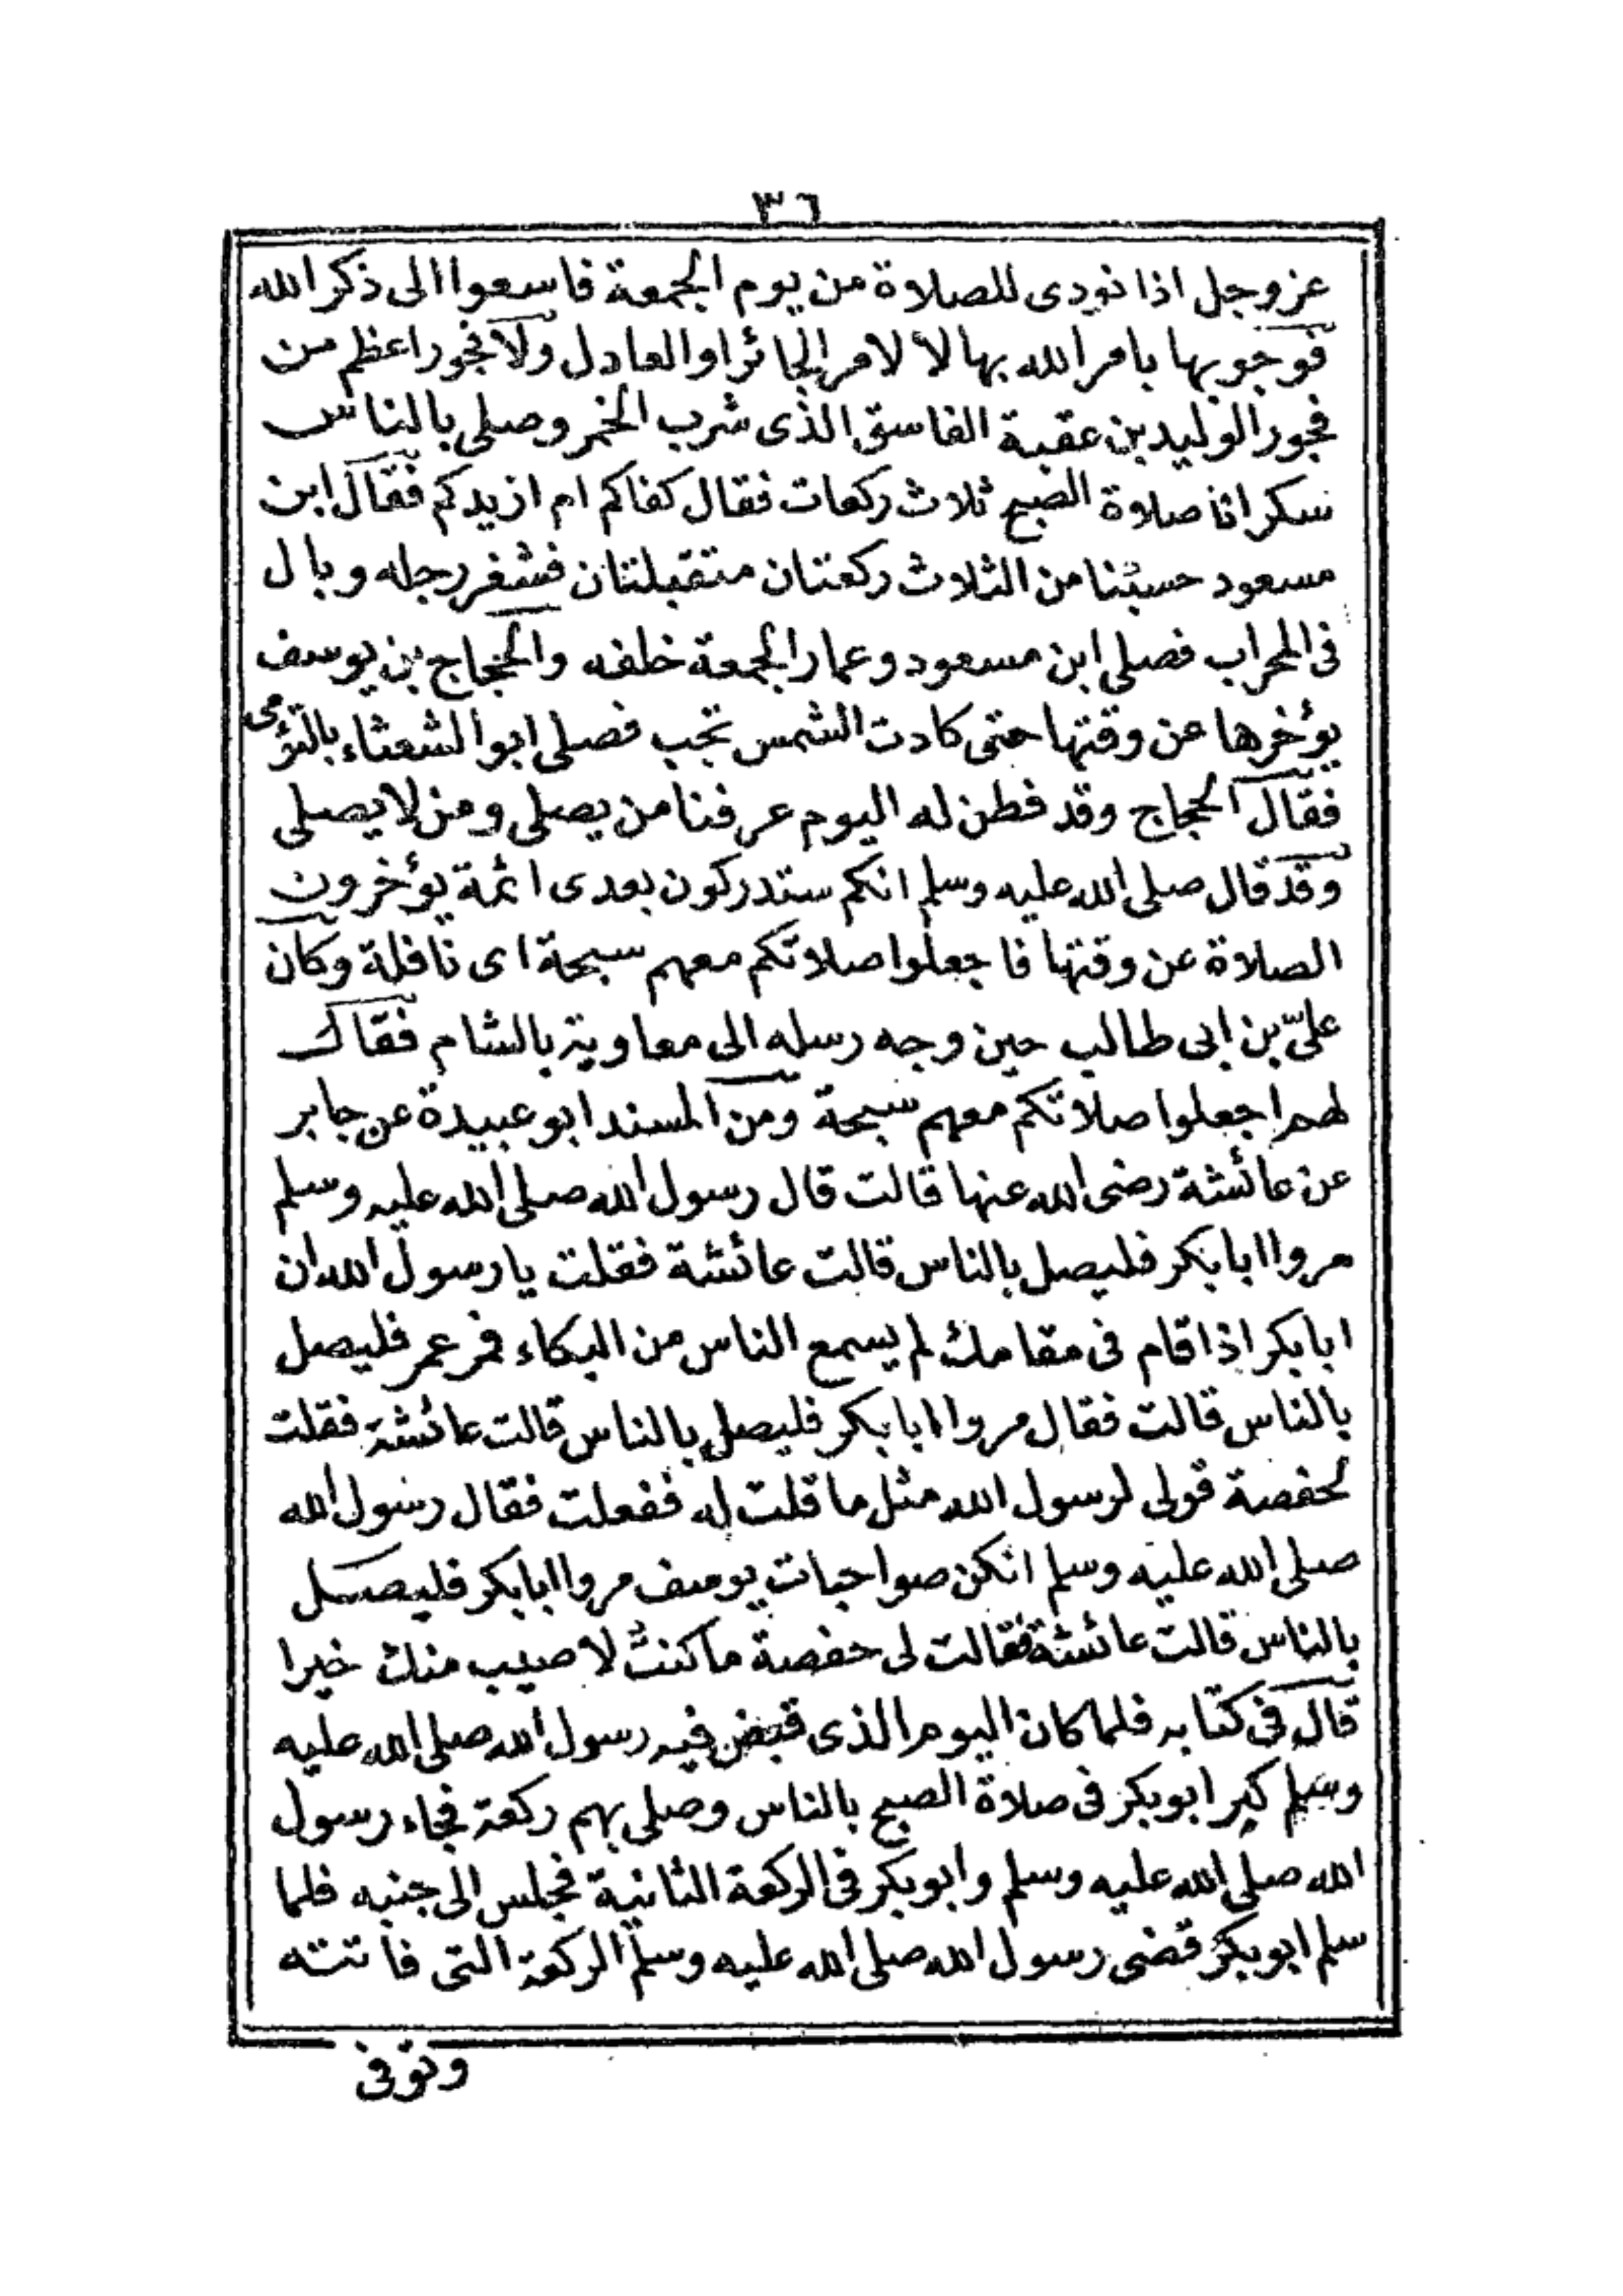 ٣٦
عز وجل اذا نودى للصلاة من يوم الجمعة فاسعوا الى ذكر الله
فوجوبها بامر الله بها لا لامر الجائر او العادل ولا فجور اعظم من
فجور الوليد بن عقبة الفاسق الذى شرب الخمر وصلى بالناس
سكرانا صلاة الصبح ثلاث ركعات فقال كفاكم ام ازيدكم فقال ابن
مسعود حسبنا من الثلاث ركعتان متقبلتان فشغر رجله وبال
فى المحراب فصلى ابن مسعود وعمار الجمعة خلفه والحجاج بن يوسف
يؤخرها عن وقتها حتى كادت الشمس تجب فصلى ابو الشعثاء بالتؤمى
فقال الحجاج وقد فطن له اليوم عرفنا من يصلى ومن لا يصلى
وقد قال صلى الله عليه وسلم انكم ستدركون بعدى ائمة يؤخرون
الصلاة عن وقتها فاجعلوا صلاتكم معهم سبحة اى نافلة وكان
علىّ بن ابى طالب حين وجه رسله الى معاوية بالشام فقال
لهم اجعلوا صلاتكم معهم سبحة ومن المسند ابو عبيدة عن جابر
عن عائشة رضى الله عنها قالت قال رسول الله صلى الله عليه وسلم
مروا ابا بكر فليصل بالناس قالت عائشة فقلت يا رسول الله ان
ابا بكر اذا قام فى مقامك لم يسمع الناس من البكاء فمر عمر فليصل
بالناس قالت فقال مروا ابا بكر فليصل بالناس قالت عائشة فقلت
لحفصة قولى لرسول الله مثل ما قلت له ففعلت فقال رسول الله
صلى الله عليه وسلم انكن صواحبات يوسف مروا ابا بكر فليصل
بالناس قالت عائشة فقالت لى حفصة ما كنتُ لاصيب منك خيرا
قال فى كتابه فلما كان اليوم الذى قبض فيه رسول الله صلى الله عليه
وسلم كبر ابو بكر فى صلاة الصبح بالناس وصلى بهم ركعة فجاء رسول
الله صلى الله عليه وسلم وابو بكر فى الركعة الثانية فجلس الى جنبه فلما
سلم ابو بكر قضى رسول الله صلى الله عليه وسلم الركعة التى فاتته
وتوفى